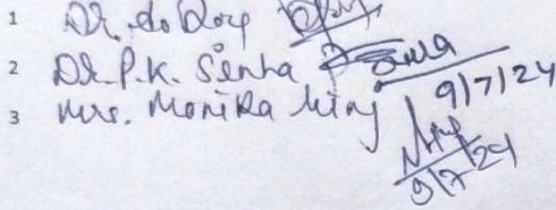 1 Dr.
2 Dr. P.K. Sinha 9/7/24
3 Mrs. Monika Minj
9/7/24